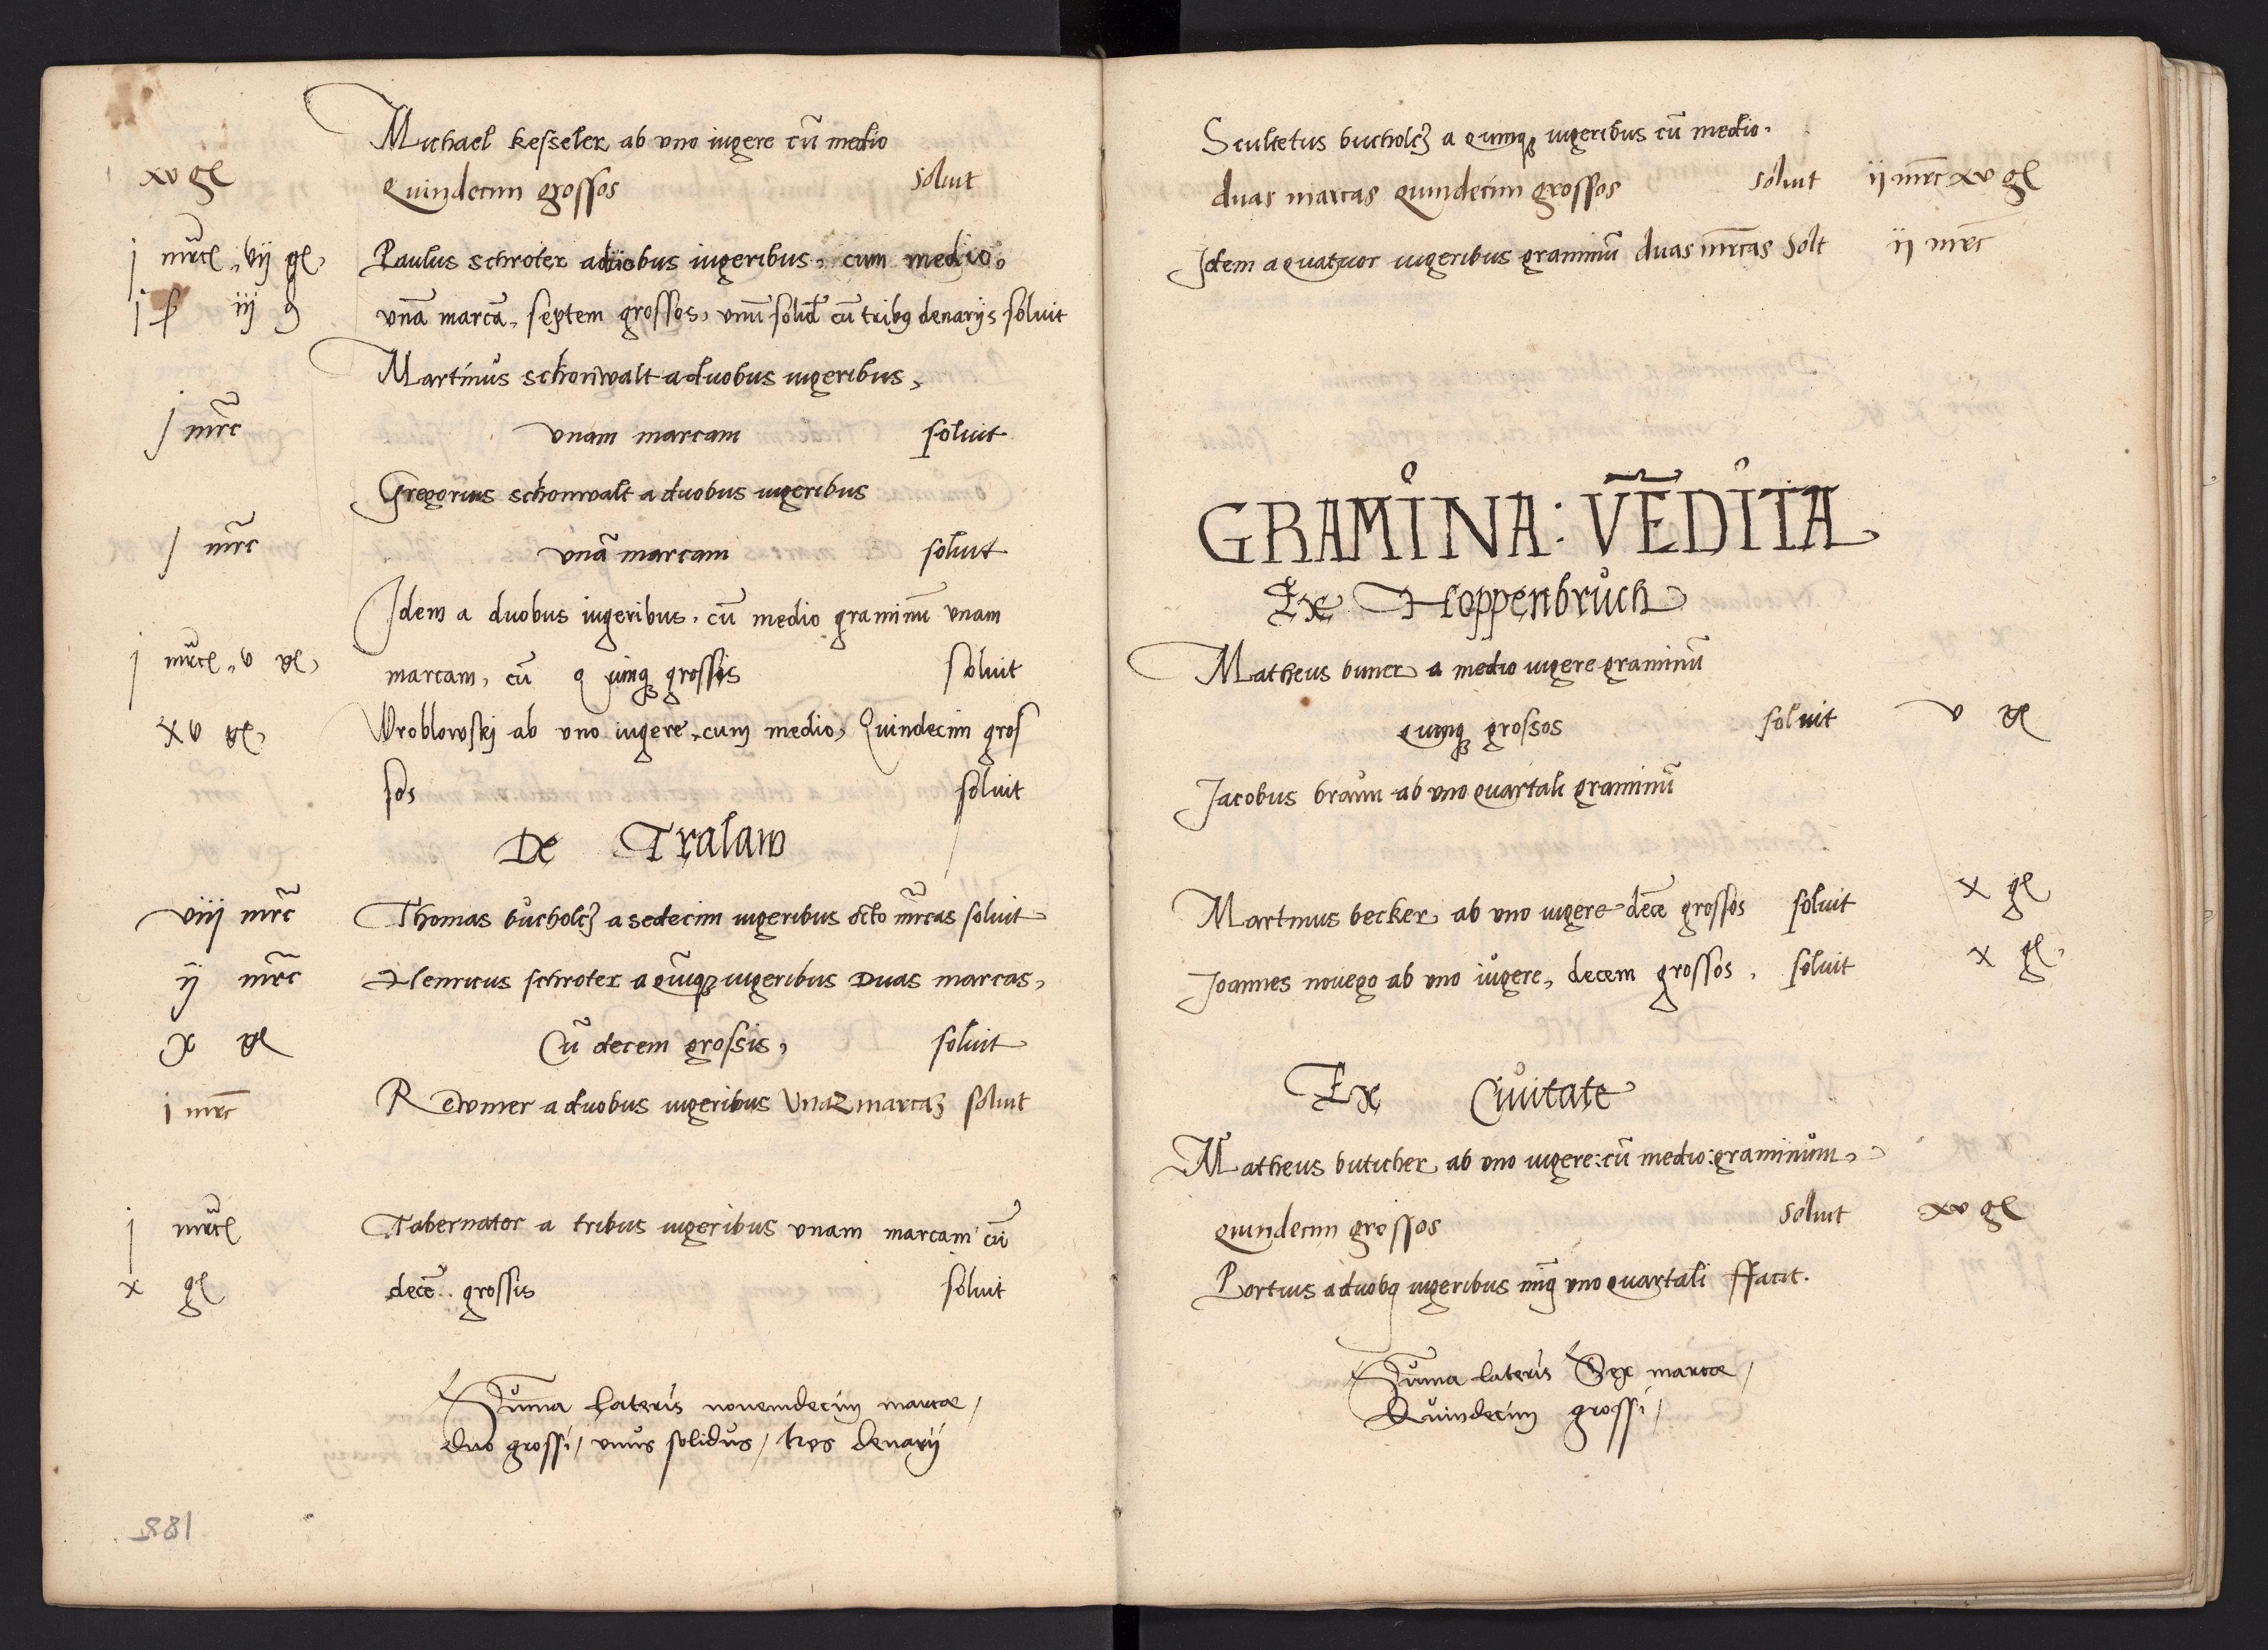 Michael kesseler ab vno iugere cū medio
xv gl Quindecim grossos soluit
j mrcl, vij gl, Paulus schroter a duobus iugeribus, cum medio,
j ſ iij ₰ vnā marcā, septem grossos, vnū solid cū tribꝰ denarijs soluit
Martinus schonwalt a duobus iugeribus,
j mrc vnam marcam soluit
Gregorius schonwalt a duobus iugeribus
j mrc vnā marcam soluit
Idem a duobus iugeribus, cū medio graminū vnam
j mrcl, v gl, marcam, cū quinqꝫ grossis soluit
xv gl, Wroblowskj ab vno iugere cum medio, Quindecim gros
sos soluit
De Tralaw
viij mrc Thomas bucholcz a sedecim iugeribus octo mrcas soluit
ij mrc Henricus schroter a quīqꝫ iugeribus Duas marcas,
x gl Cū decem grossis, soluit
i mrc Redomer a duobus iugeribus Vnaꝫ marcaꝫ soluit
j mrcl Tabernator a tribus iugeribus vnam marcam cū
x gl decē grossis soluit
Summa Lateris nouemdecim marcae /
duo grossi / vnus solidus / tres denarij
188
Scultetus bucholcz a quinqꝫ iugeribus cū medio.
duas marcas quindecim grossos soluit ij mrc xv gl
Idem a quatuor iugeribus graminū duas mrcas solt ij mrc
GRAMINA : VĒDITA
Ex Hoppenbruch
Matheus buner a medio iugere graminū
quinqꝫ grossos soluit v gl
Jacobus braun ab vno quartali graminū
Martinus becker ab vno iugere decē grossos soluit x gl
Joannes nouego ab vno iugere, decem grossos, soluit x gl,
Ex Ciuitate
Matheus buticher ab vno iugere: cū medio: graminum,
quindecim grossos soluit xv gl
Portius a duobꝰ iugeribus vno quartali ffacit.
Summa lateris Sex marcae /
Quindecim grossi /